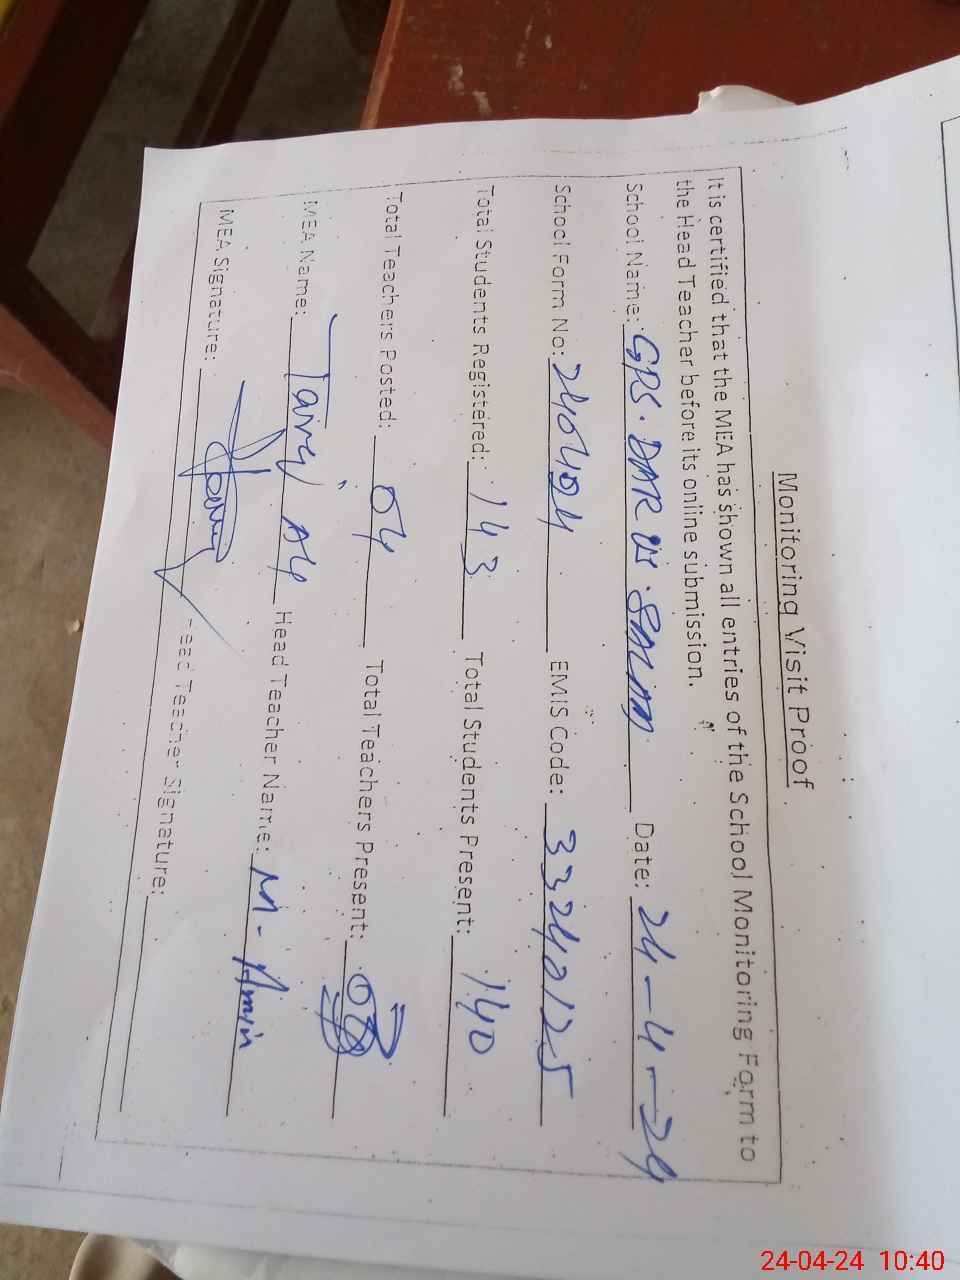 Monitoring Visit Proof
It is certified that the MEA has shown all entries of the School Monitoring Form to
the Head Teacher before its online submission.
School Name: GPS. DAR US. SALAM Date: 24-4-24
School Form No: 240424 EMIS Code: 33240125
Total Students Registered: 143 Total Students Present: 140
Total Teachers Posted: 04 Total Teachers Present:
MEA Name: Tariq Ali Head Teacher Name: M. Amin
MEA Signature: Head Teacher Signature:
24-04-24 10:40